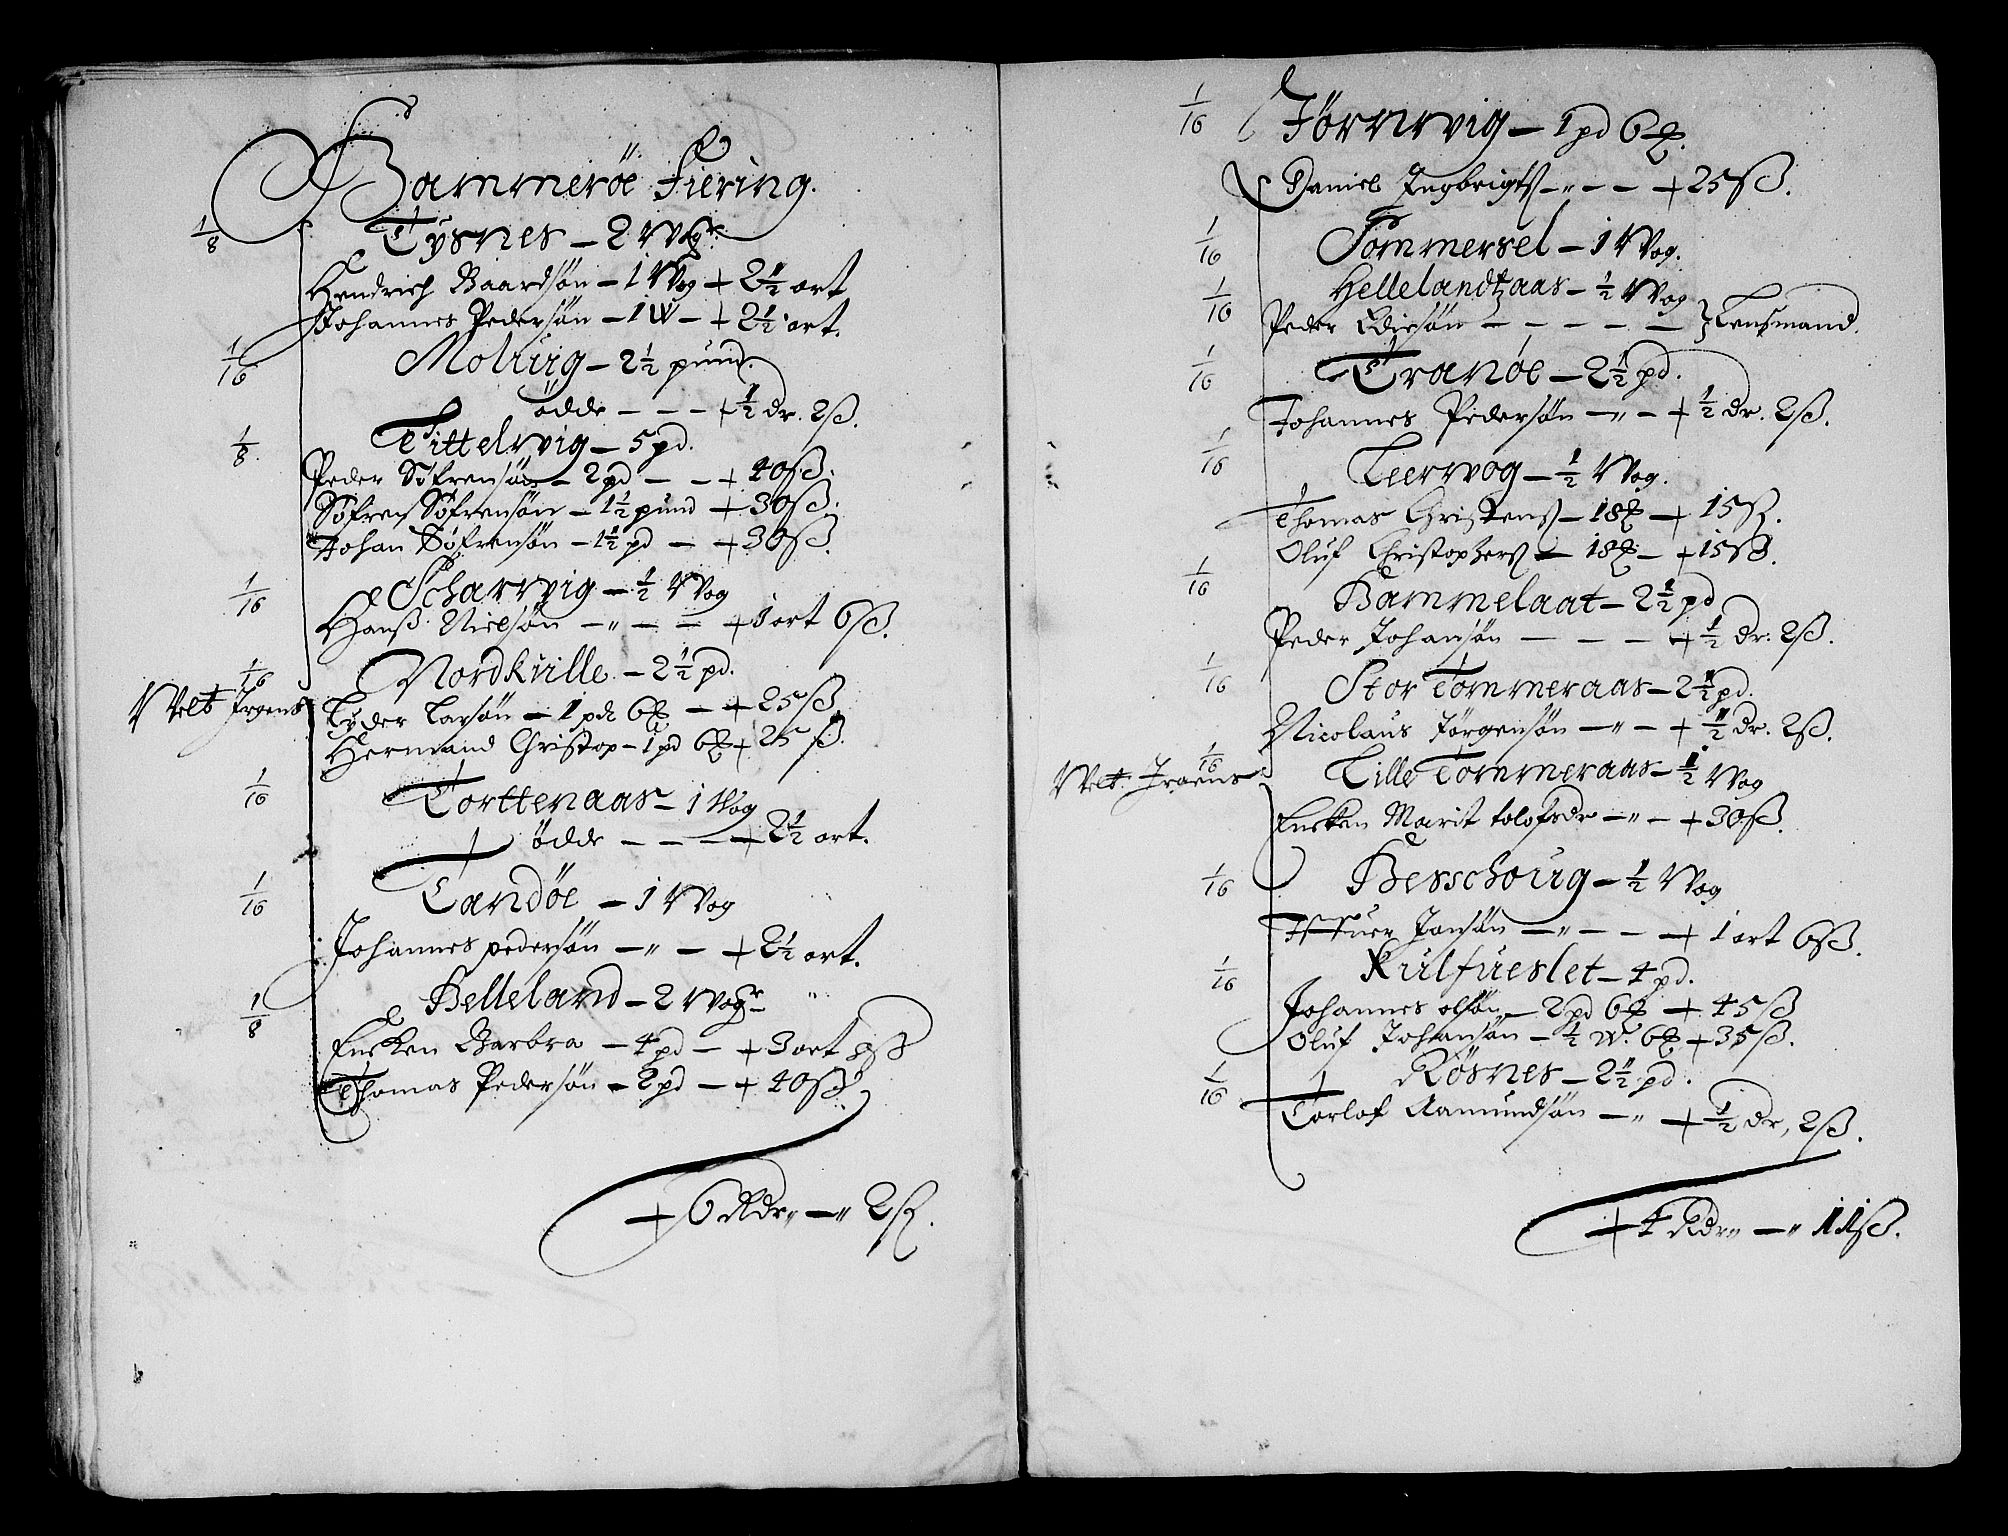 Hammerøe Fiering.
1/8 Tysnes – 2 Wogr.
Hendrich Baardsøn – 1 Wog + 2½ ort
Johannes Pedersøn – 1 W – + 2½ ort.
1/16 Moluig – 2½ pund.
ödde – – – + ½ dr. 2ß.
1/8 Tittelwig – 5 pd.
Peder Søfrensøn – 2 pd – – + 40ß.
Søfren Søfrensøn – 1½ pund + 30ß.
Johan Søfrensøn – 1½ pd – + 30ß.
1/16 Scharwig – ½ Wog
Hanß Nielsøn – „ – – + 1 ort 6ß.
1/16 Nordkuille – 2½ pd.
Welt Jrgens Tyder Larsøn – 1 pd 6 – + 25ß
Hermand Christop – 1 pd 6 + 25ß.
1/16 Torttenaas – 1 Wog
ödde – – – + 2½ ort.
1/16 Tandøe – 1 Wog
Johannes pedersøn – „ – + 2½ ort.
1/8 Helleland – 2 Wogr
Encken Barbra – 4 pd – + 3 ort 8ß
Thomas Pedersøn – 2 pd – + 40ß
+ 6 Rdr „ – „ 2ß.
1/16 Jørnwig – 1 pd 6.
Daniel Ingbrigtß – „ – – + 25ß.
1/16 Sommersel – 1 Wog.
1/16 Hellelandtzaas – ½ Wog
Peder Edisøn – – – – – } Lensmand.
1/16 Tranøe – 2½ pd.
Johannes Pedersøn – „ – + ½ dr. 2ß.
1/16 Leerwog – ½ Wog.
Thomas Christens – 18 – + 15ß.
Oluf Christophers – 18 – + 15ß.
1/16 Hammelaat – 2½ pd
Peder Johansøn – – – + ½ dr. 2ß.
1/16 Stor Tømmeraas – 2½ pd.
Nicolaus Jørgensøn – „ – + ½ dr. 2ß.
1/16 Lille Tømmeraas – ½ Wog
Welt. Jrgens
Encken Marit tolofsdr – „ – + 30ß.
1/16 Hesschoug – ½ Wog
Jffuer Jonsøn – „ – – + 1 ort 6ß.
1/16 Kulfueslet – 4 pd.
Johannes olsøn – 2 pd 6 + 45ß
Oluf Johansøn – ½ W. 6 + 35ß.
1/16 Røsnes – 2½ pd.
Torlof Aamundsøn – „ + ½ dr, 2ß.
+ 4 Rdr „ – „ 11ß.